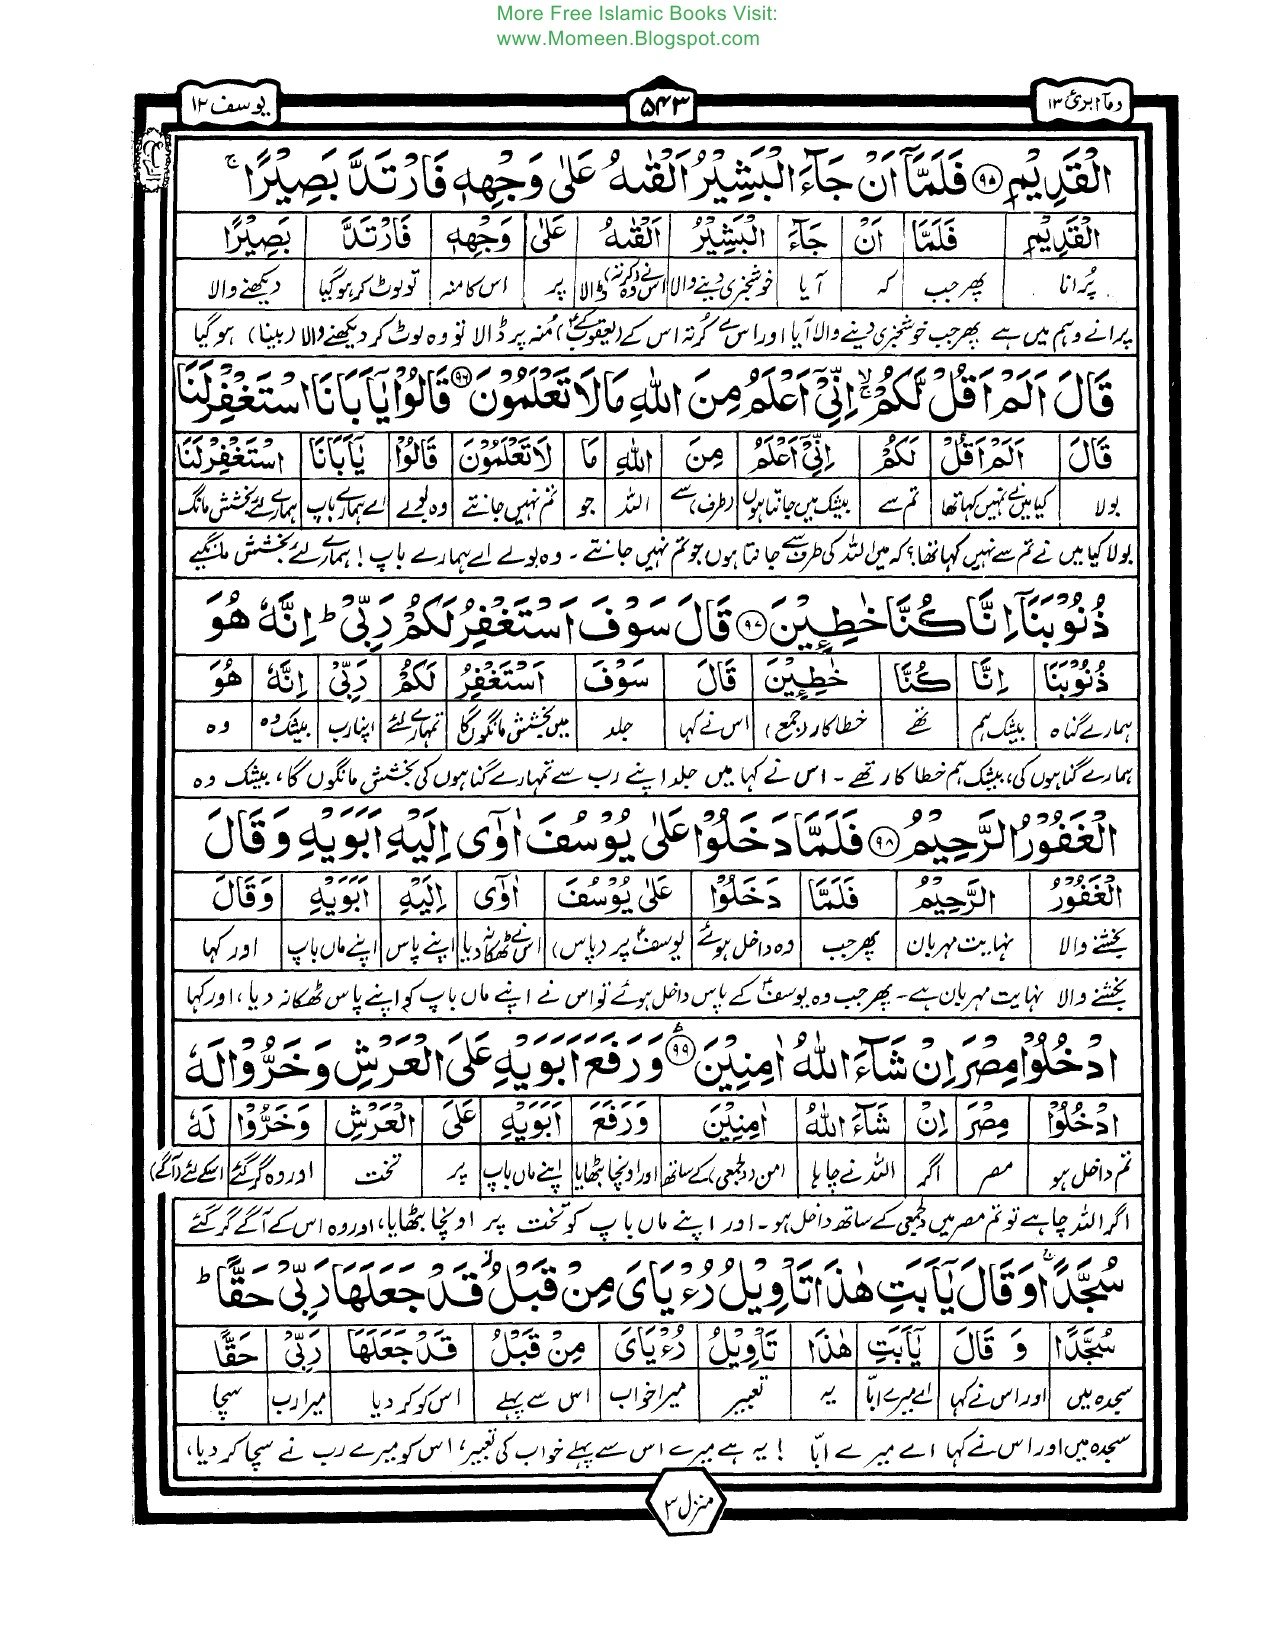 More Free Islamic Books Visit:
www.Momeen.Blogspot.com
ومآ ابرئ ۱۳
۵۴۳
یوسف ۱۲
الْقَدِيْمِ ﴿۹۵﴾ فَلَمَّآ اَنْ جَآءَ الْبَشِيْرُ اَلْقٰىهُ عَلٰى وَجْهِهٖ فَارْتَدَّ بَصِيْرًا ۚ
الْقَدِيْمِ فَلَمَّآ اَنْ جَآءَ الْبَشِيْرُ اَلْقٰىهُ عَلٰى وَجْهِهٖ فَارْتَدَّ بَصِيْرًا
پُرانا پھر جب کہ آیا خوشخبری دینے والا اس نے وہ (کرتہ) ڈالا پر اس کا منہ تو لوٹ کر ہوگیا دیکھنے والا
پرانے وہم میں ہے پھر جب خوشخبری دینے والا آیا اور اس نے کُرتہ اس کے (یعقوبؑ کے) مُنہ پر ڈالا تو وہ لوٹ کر دیکھنے والا (بینا) ہو گیا
قَالَ اَلَمْ اَقُلْ لَّكُمْ ۙ اِنِّيْٓ اَعْلَمُ مِنَ اللّٰهِ مَا لَا تَعْلَمُوْنَ ﴿۹۶﴾ قَالُوْا يٰٓاَبَانَا اسْتَغْفِرْ لَنَا
قَالَ اَلَمْ اَقُلْ لَكُمْ اِنِّيْٓ اَعْلَمُ مِنَ اللّٰهِ مَا لَا تَعْلَمُوْنَ قَالُوْا يٰٓاَبَانَا اسْتَغْفِرْ لَنَا
بولا کیا میں نے نہیں کہا تھا تم سے بیشک میں جانتا ہوں (طرف) سے اللہ جو تم نہیں جانتے وہ بولے اے ہمارے باپ ہمارے لئے بخشش مانگ
بولا کیا میں نے تم سے نہیں کہا تھا؟ کہ میں اللہ کی طرف سے جانتا ہوں جو تم نہیں جانتے ۔ وہ بولے اے ہمارے باپ ! ہمارے لئے بخشش مانگیے
ذُنُوْبَنَآ اِنَّا كُنَّا خٰطِـِٕيْنَ ﴿۹۷﴾ قَالَ سَوْفَ اَسْتَغْفِرُ لَكُمْ رَبِّيْ ؕ اِنَّهٗ هُوَ
ذُنُوْبَنَآ اِنَّا كُنَّا خٰطِـِٕيْنَ قَالَ سَوْفَ اَسْتَغْفِرُ لَكُمْ رَبِّيْ اِنَّهٗ هُوَ
ہمارے گناہ بیشک ہم تھے خطا کار (جمع) اس نے کہا جلد میں بخشش مانگوں گا تمہارے لئے اپنا رب بیشک وہ وہ
ہمارے گناہوں کی، بیشک ہم خطا کار تھے ۔ اس نے کہا میں جلد اپنے رب سے تمہارے گناہوں کی بخشش مانگوں گا، بیشک وہ
الْغَفُوْرُ الرَّحِيْمُ ﴿۹۸﴾ فَلَمَّا دَخَلُوْا عَلٰى يُوْسُفَ اٰوٰٓى اِلَيْهِ اَبَوَيْهِ وَقَالَ
الْغَفُوْرُ الرَّحِيْمُ فَلَمَّا دَخَلُوْا عَلٰى يُوْسُفَ اٰوٰٓى اِلَيْهِ اَبَوَيْهِ وَقَالَ
بخشنے والا نہایت مہربان پھر جب وہ داخل ہوئے یوسفؑ پر (پاس) اس نے ٹھکانہ دیا اپنے پاس اپنے ماں باپ اور کہا
بخشنے والا نہایت مہربان ہے ۔ پھر جب وہ یوسفؑ کے پاس داخل ہوئے تو اس نے اپنے ماں باپ کو اپنے پاس ٹھکانہ دیا، اور کہا
ادْخُلُوْا مِصْرَ اِنْ شَآءَ اللّٰهُ اٰمِنِيْنَ ﴿۹۹﴾ وَرَفَعَ اَبَوَيْهِ عَلَى الْعَرْشِ وَخَرُّوْا لَهٗ
ادْخُلُوْا مِصْرَ اِنْ شَآءَ اللّٰهُ اٰمِنِيْنَ وَرَفَعَ اَبَوَيْهِ عَلَى الْعَرْشِ وَخَرُّوْا لَهٗ
تم داخل ہو مصر اگر اللہ نے چاہا امن (دلجمعی) کے ساتھ اور اونچا بٹھایا اپنے ماں باپ پر تخت اور وہ گر گئے اسکے لئے (آگے)
اگر اللہ چاہے تو تم مصر میں دلجمعی کے ساتھ داخل ہو ۔ اور اپنے ماں باپ کو تخت پر اونچا بٹھایا، اور وہ اس کے آگے گر گئے
سُجَّدًا ۚ وَقَالَ يٰٓاَبَتِ هٰذَا تَاْوِيْلُ رُءْيَايَ مِنْ قَبْلُ ۡ قَدْ جَعَلَهَا رَبِّيْ حَقًّا ؕ
سُجَّدًا وَقَالَ يٰٓاَبَتِ هٰذَا تَاْوِيْلُ رُءْيَايَ مِنْ قَبْلُ قَدْ جَعَلَهَا رَبِّيْ حَقًّا
سجدہ میں اور اس نے کہا اے میرے ابّا یہ تعبیر میرا خواب اس سے پہلے اس کو کر دیا میرا رب سچا
سجدہ میں اور اس نے کہا اے میرے ابّا ! یہ ہے میرے اس سے پہلے خواب کی تعبیر، اس کو میرے رب نے سچا کر دیا،
منزل ۳